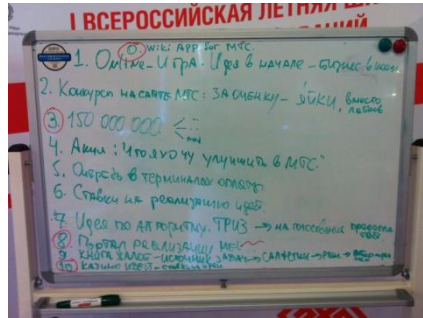 I ВСЕРОССИЙСКАЯ ЛЕТНЯЯ
0. Wiki APP for МТС.
1. Online-Игра. Идея в начале - бизнес в конце
2. Конкурс на сайте МТС: за оценку - яйки, вместо лайков
3 150 000 000
4. Акция: "Что я хочу улучшить в МТС"
5. в терминалах оплаты
6. Ставки на реализацию идей.
7. Идея по алгоритму. ТРИЗ → на голосование
8. Портал реализации
9 КНИГА ЖАЛОБ - источник задач →
10 КАЗИНО ИДЕЙ -